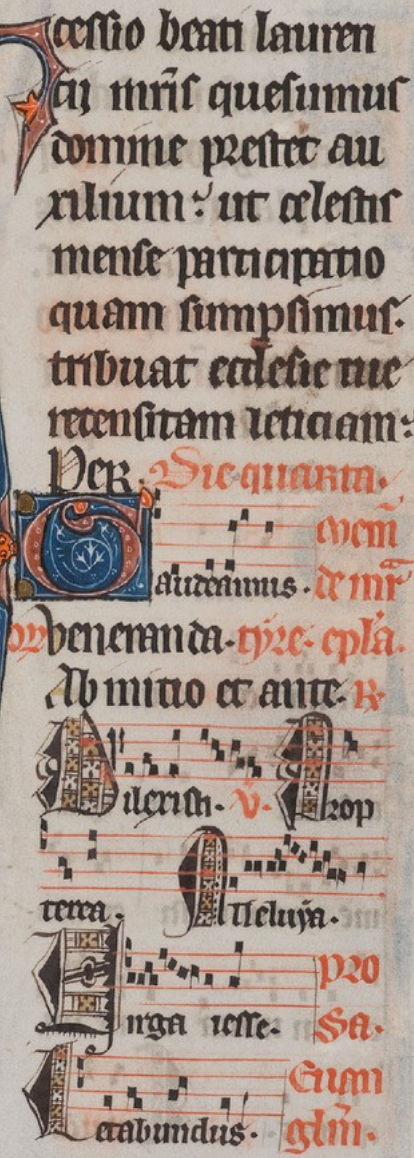 Intcessio beati lauren
cij mr̄is quesumus
domine prestet au
xilium: ut celestis
mense participatio
quam sumpsimus.
tribuat ecclesie tue
recensitam leticiam:
Per. Die quarta.
Gaudeamus. de mr̄
veneranda. epl̄a.
Ab initio et ante. R
Dilexisti. V. Prop
terea. Alleluya.
Virga iesse. prosa.
Letabundus. Euan
glm̄.